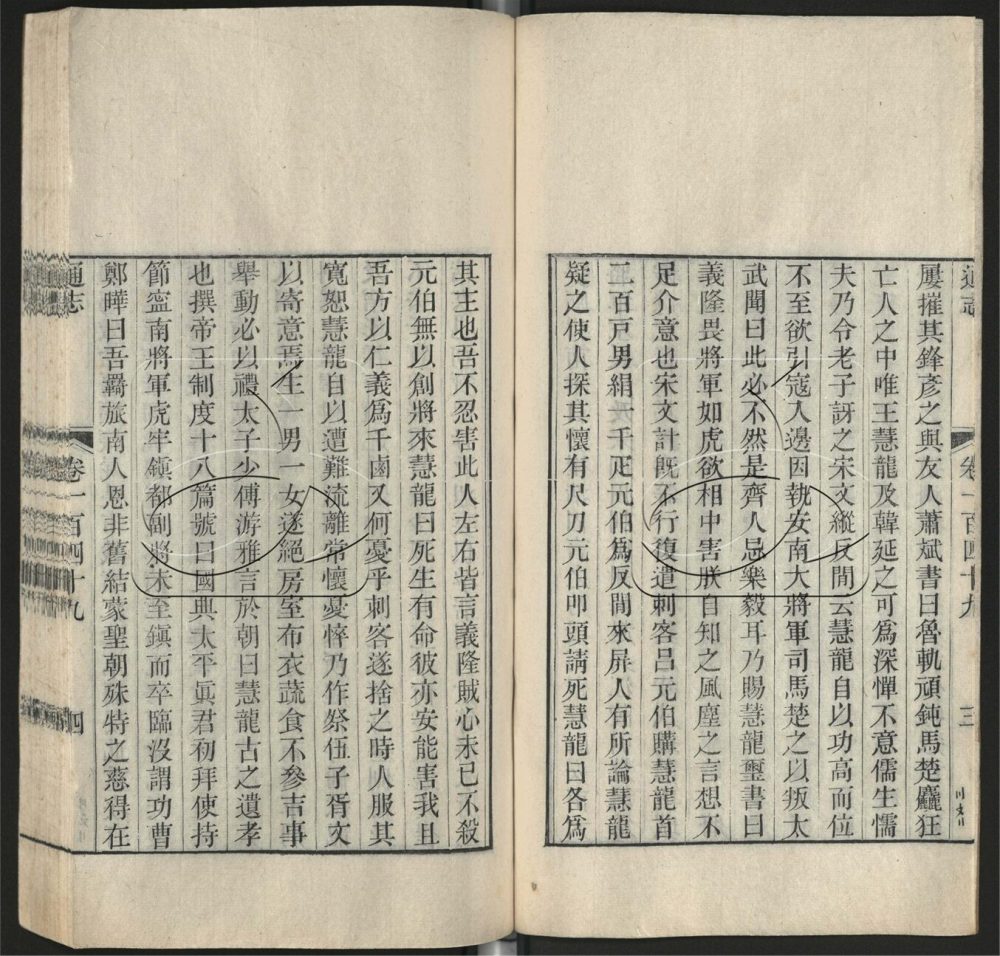 通志
卷一百四十九
三
屢摧其鋒彥之與友人蕭斌書曰魯軌頑鈍馬楚麤狂
亡人之中唯王慧龍及韓延之可爲深憚不意儒生懦
夫乃令老子訝之宋文縱反間云慧龍自以功高而位
不至欲引寇入邊因執安南大將軍司馬楚之以叛太
武聞曰此必不然是齊人忌樂毅耳乃賜慧龍璽書曰
義隆畏將軍如虎欲相中害朕自知之風塵之言想不
足介意也宋文計旣不行復遣刺客呂元伯購慧龍首
二百戸男絹一千疋元伯爲反間來屏人有所論慧龍
疑之使人探其懷有尺刀元伯叩頭請死慧龍曰各爲
其主也吾不忍害此人左右皆言義隆賊心未已不殺
元伯無以創將來慧龍曰死生有命彼亦安能害我且
吾方以仁義爲干鹵又何憂乎刺客遂捨之時人服其
寬恕慧龍自以遭難流離常懷憂悴乃作祭伍子胥文
以寄意焉生一男一女遂絕房室布衣蔬食不參吉事
舉動必以禮太子少傅游雅言於朝曰慧龍古之遺孝
也撰帝王制度十八篇號曰國典太平眞君初拜使持
節寧南將軍虎牢鎭都副將未至鎭而卒臨沒謂功曹
鄭曄曰吾羈旅南人恩非舊結蒙聖朝殊特之慈得在
通志
卷一百四十九
四